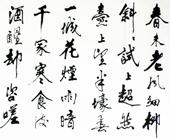 春未老風細柳
斜斜試上超然
臺上望半壕春水
一城花煙雨暗
千家寒食後
酒醒却咨嗟